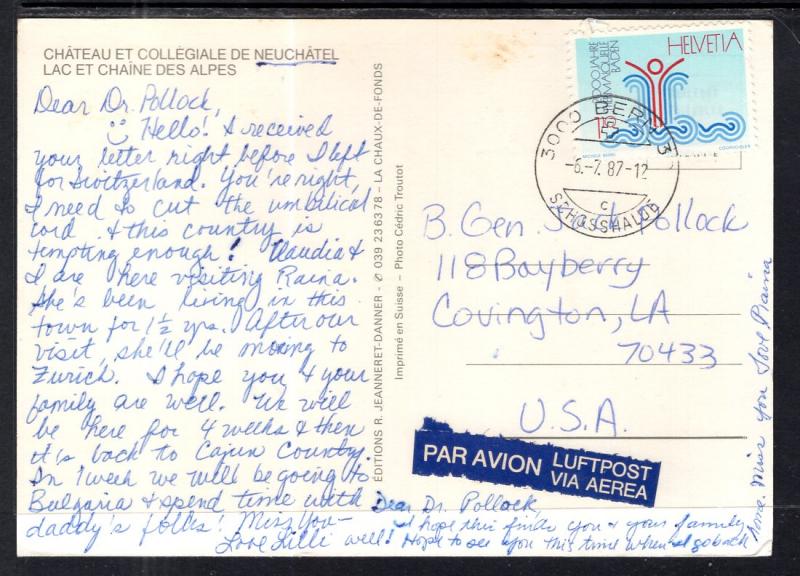 CHÂTEAU ET COLLÉGIALE DE NEUCHÂTEL
LAC ET CHAÎNE DES ALPES
Dear Dr. Pollock,
Hello! I received
your letter right before I left
for Switzerland. You're right,
I need to cut the umbilical
cord & this country is
tempting enough! Claudia &
I are here visiting Raina.
She's been living in this
town for 1½ yrs. After our
visit, she'll be moving to
Zurich. I hope you & your
family are well. We will
be here for 4 weeks & then
it's back to Cajun Country.
In 1 week we will be going to
Bulgaria & spend time with
daddy's folks! Miss You-
Love Lilli
Dear Dr. Pollock,
I hope this finds you & your family
well! Hope to see you this time when I go back
home. Miss you Love Raina
ÉDITIONS R. JEANNERET-DANNER - ✆ 039 23 63 78 - LA CHAUX-DE-FONDS
Imprimé en Suisse - Photo Cédric Troutot
HELVETIA
2000 JAHRE
THERMALQUELLE
BADEN
3000 BERN 13
-6.-7. 87-12
c
SCHOSSHALDE
B. Gen. Jack Pollock
118 Bayberry
Covington, LA
70433
U.S.A.
PAR AVION
LUFTPOST
VIA AEREA